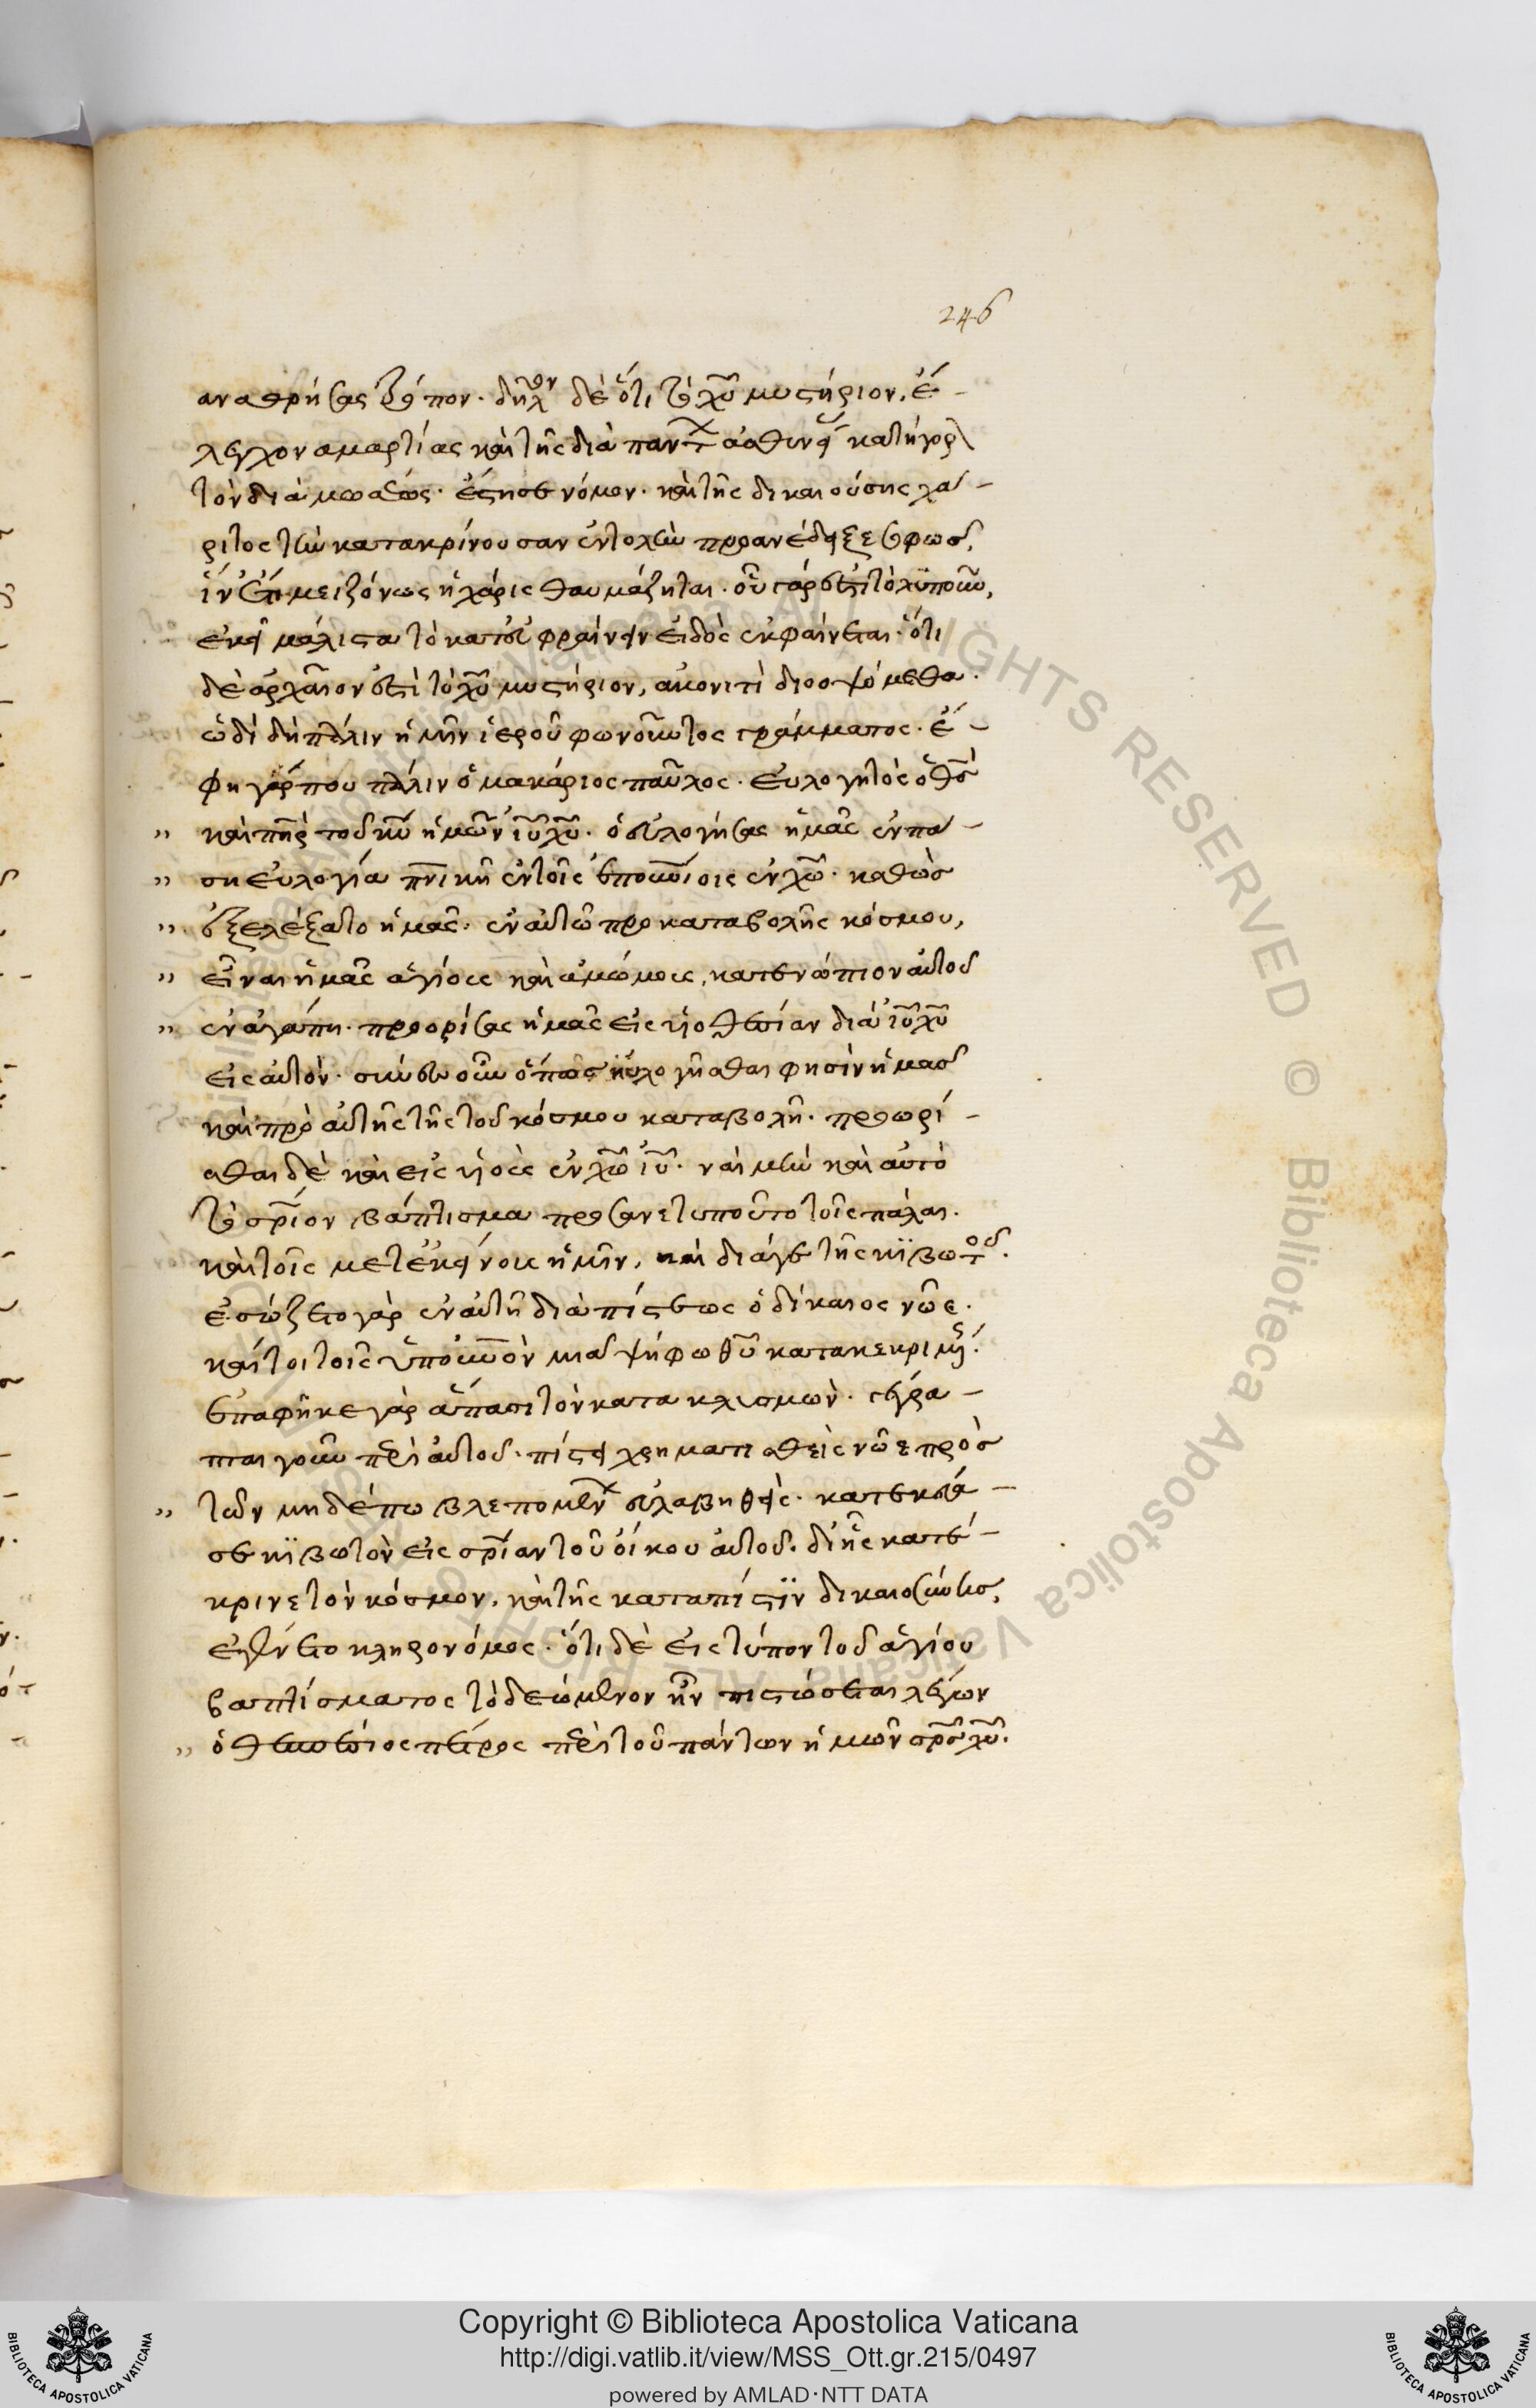 246
αναθρήσας τύπον. δῆλον δὲ ὅτι τὸ χῦ μυστήριον, ἔ-
λεγχον αμαρτίας καὶ τῆς διὰ παντ ἀσθενεί κατήγορ
τὸν διὰ μωσέως. ἔστησε νόμον. καὶ τῆς δικαιούσης χά-
ριτος τὴν κατακρίνουσαν ἐντολὴν προανέδειξε
ἵν ἔτι μειζόνως ἡ χάρις θαυμάζηται. οὗ γάρ ἐστι τὸ λυποῦν,
ἐκεῖ μάλιστα τὸ κατευφραίνειν εἰδὸς ἐκφαίνεται. ὅτι
δὲ ἀρχαῖον ἐστὶ τὸ χῦ μυστήριον, ἀκονιτὶ διοψόμεθα.
ὡδί δὴ πάλιν ἡμῖν ἱεροῦ φωνοῦντος γράμματος. ἔ-
φη γάρ που πάλιν ὁ μακάριος παῦλος. ευλογητὸς ὁ θσ
" καὶ πηρ τοῦ κυ ἡμῶν ιῦ χῦ. ὁ εὐλογήσας ἡμᾶς ἐν πά-
" ση ευλογία πνικῆ ἐν τοῖς ἐπουνίοις ἐν χῶ. καθὼς
" ἐξελέξατο ἡμᾶς. ἐν αὐτῶ προ καταβολῆς κόσμου,
" εἶναι ἡμᾶς ἁγίους καὶ ἀμώμους, κατενώπιον αὐτοῦ
" ἐν ἀγάπη. προορίσας ἡμᾶς εἰς υἱοθεσίαν διὰ ἰῦ χῦ
εἰς αὐτόν. συνίης οὖν ὅπως ηὐλογῆσθαι φησὶν ἡμᾶς
καὶ πρὸ αὐτῆς τῆς τοῦ κόσμου καταβολῆς. προωρί-
σθαι δὲ καὶ εἰς υἱοὺς ἐν χῶ ἰῦ. ναὶ μὴν καὶ αὐτὸ
τὸ σρῖον βάπτισμα προανετυποῦτο τοῖς πάλαι.
καὶ τοῖς μετ ἐκείνους ἡμῖν, καὶ διάγε τῆς κϊβωτοῦ.
ἐσώζετο γὰρ ἐν αὐτῆ διὰ πίστεως ὁ δίκαιος νῶε.
καίτοι τοῖς ὑπ οὐνὸν μιᾶ ψήφω θῦ κατακεκριμέ.
ἐπαφῆκε γὰρ ἅπασι τὸν κατακλυσμὸν. γέγρα-
πται γοῦν περὶ αὐτοῦ. πίστει χρηματισθεὶς νῶε πρὸς
" τῶν μηδέπω βλεπομέν εὐλαβηθείς. κατεσκεύα-
σε κϊβωτὸν εἰς σρίαν τοῦ οἴκου αὐτοῦ. δι ἧς κατέ-
κρινε τὸν κόσμον, καὶ τῆς κατα πίστϊν δικαιοσύνης,
ἐγένετο κληρονόμος. ὅτι δὲ εἰς τύπον τοῦ ἁγίου
βαπτίσματος τὸ δρώμενον ἦν πιστώσεται λέγων
" ὁ θεσπέσιος πέτρος περὶ τοῦ πάντων ἡμῶν σρσ χῦ.
Copyright © Biblioteca Apostolica Vaticana
http://digi.vatlib.it/view/MSS_Ott.gr.215/0497
powered by AMLAD·NTT DATA